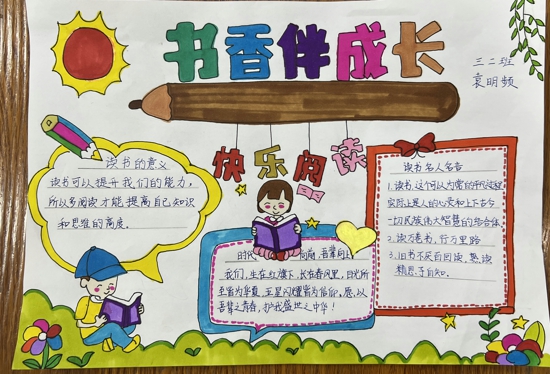 书香伴成长
三二班
袁明频
快乐阅读
读书的意义
读书可以提升我们的能力,
所以多阅读才能提高自己知识
和思维的高度。
读书名人名言
1.读书,这个可以内常的平凡过程,
实际上是人的心灵和上下古今
一切民族伟大智慧的结合体。
2.读万卷书,行万里路
3.旧书不厌百回读,熟读
精思子自知。
时代
我们,生在红旗下,长在春风里,目光所
至皆为华夏,五星闪耀皆为信仰,愿以
吾辈之青春,护我盛世之中华!